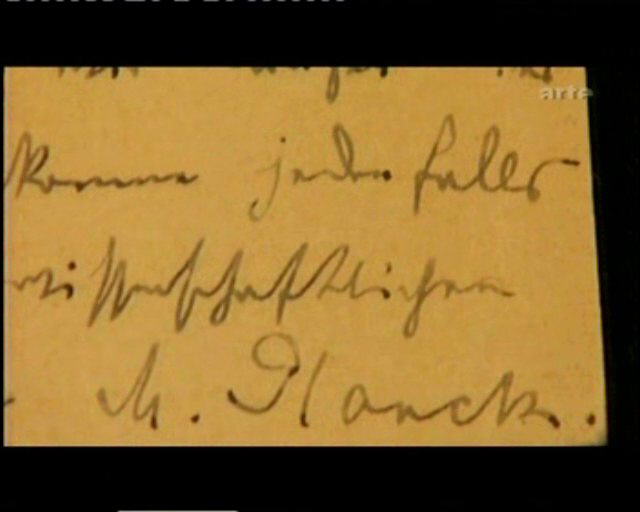 arte
komme jedenfalls
wissenschaftlichen
M. Planck.